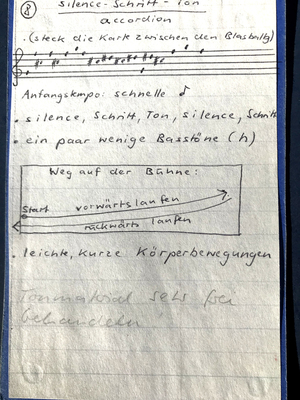 8
silence-Schritt-Ton
accordion
. (steck die Karte zwischen den Blasbalg)
Anfangstempo: schnelle ♪
• silence, Schritt, Ton, silence, Schritt
• ein paar wenige Basstöne (h)
Weg auf der Bühne:
Start vorwärts laufen
rückwärts laufen
• leichte, kurze Körperbewegungen
Tonmaterial sehr frei
behandeln